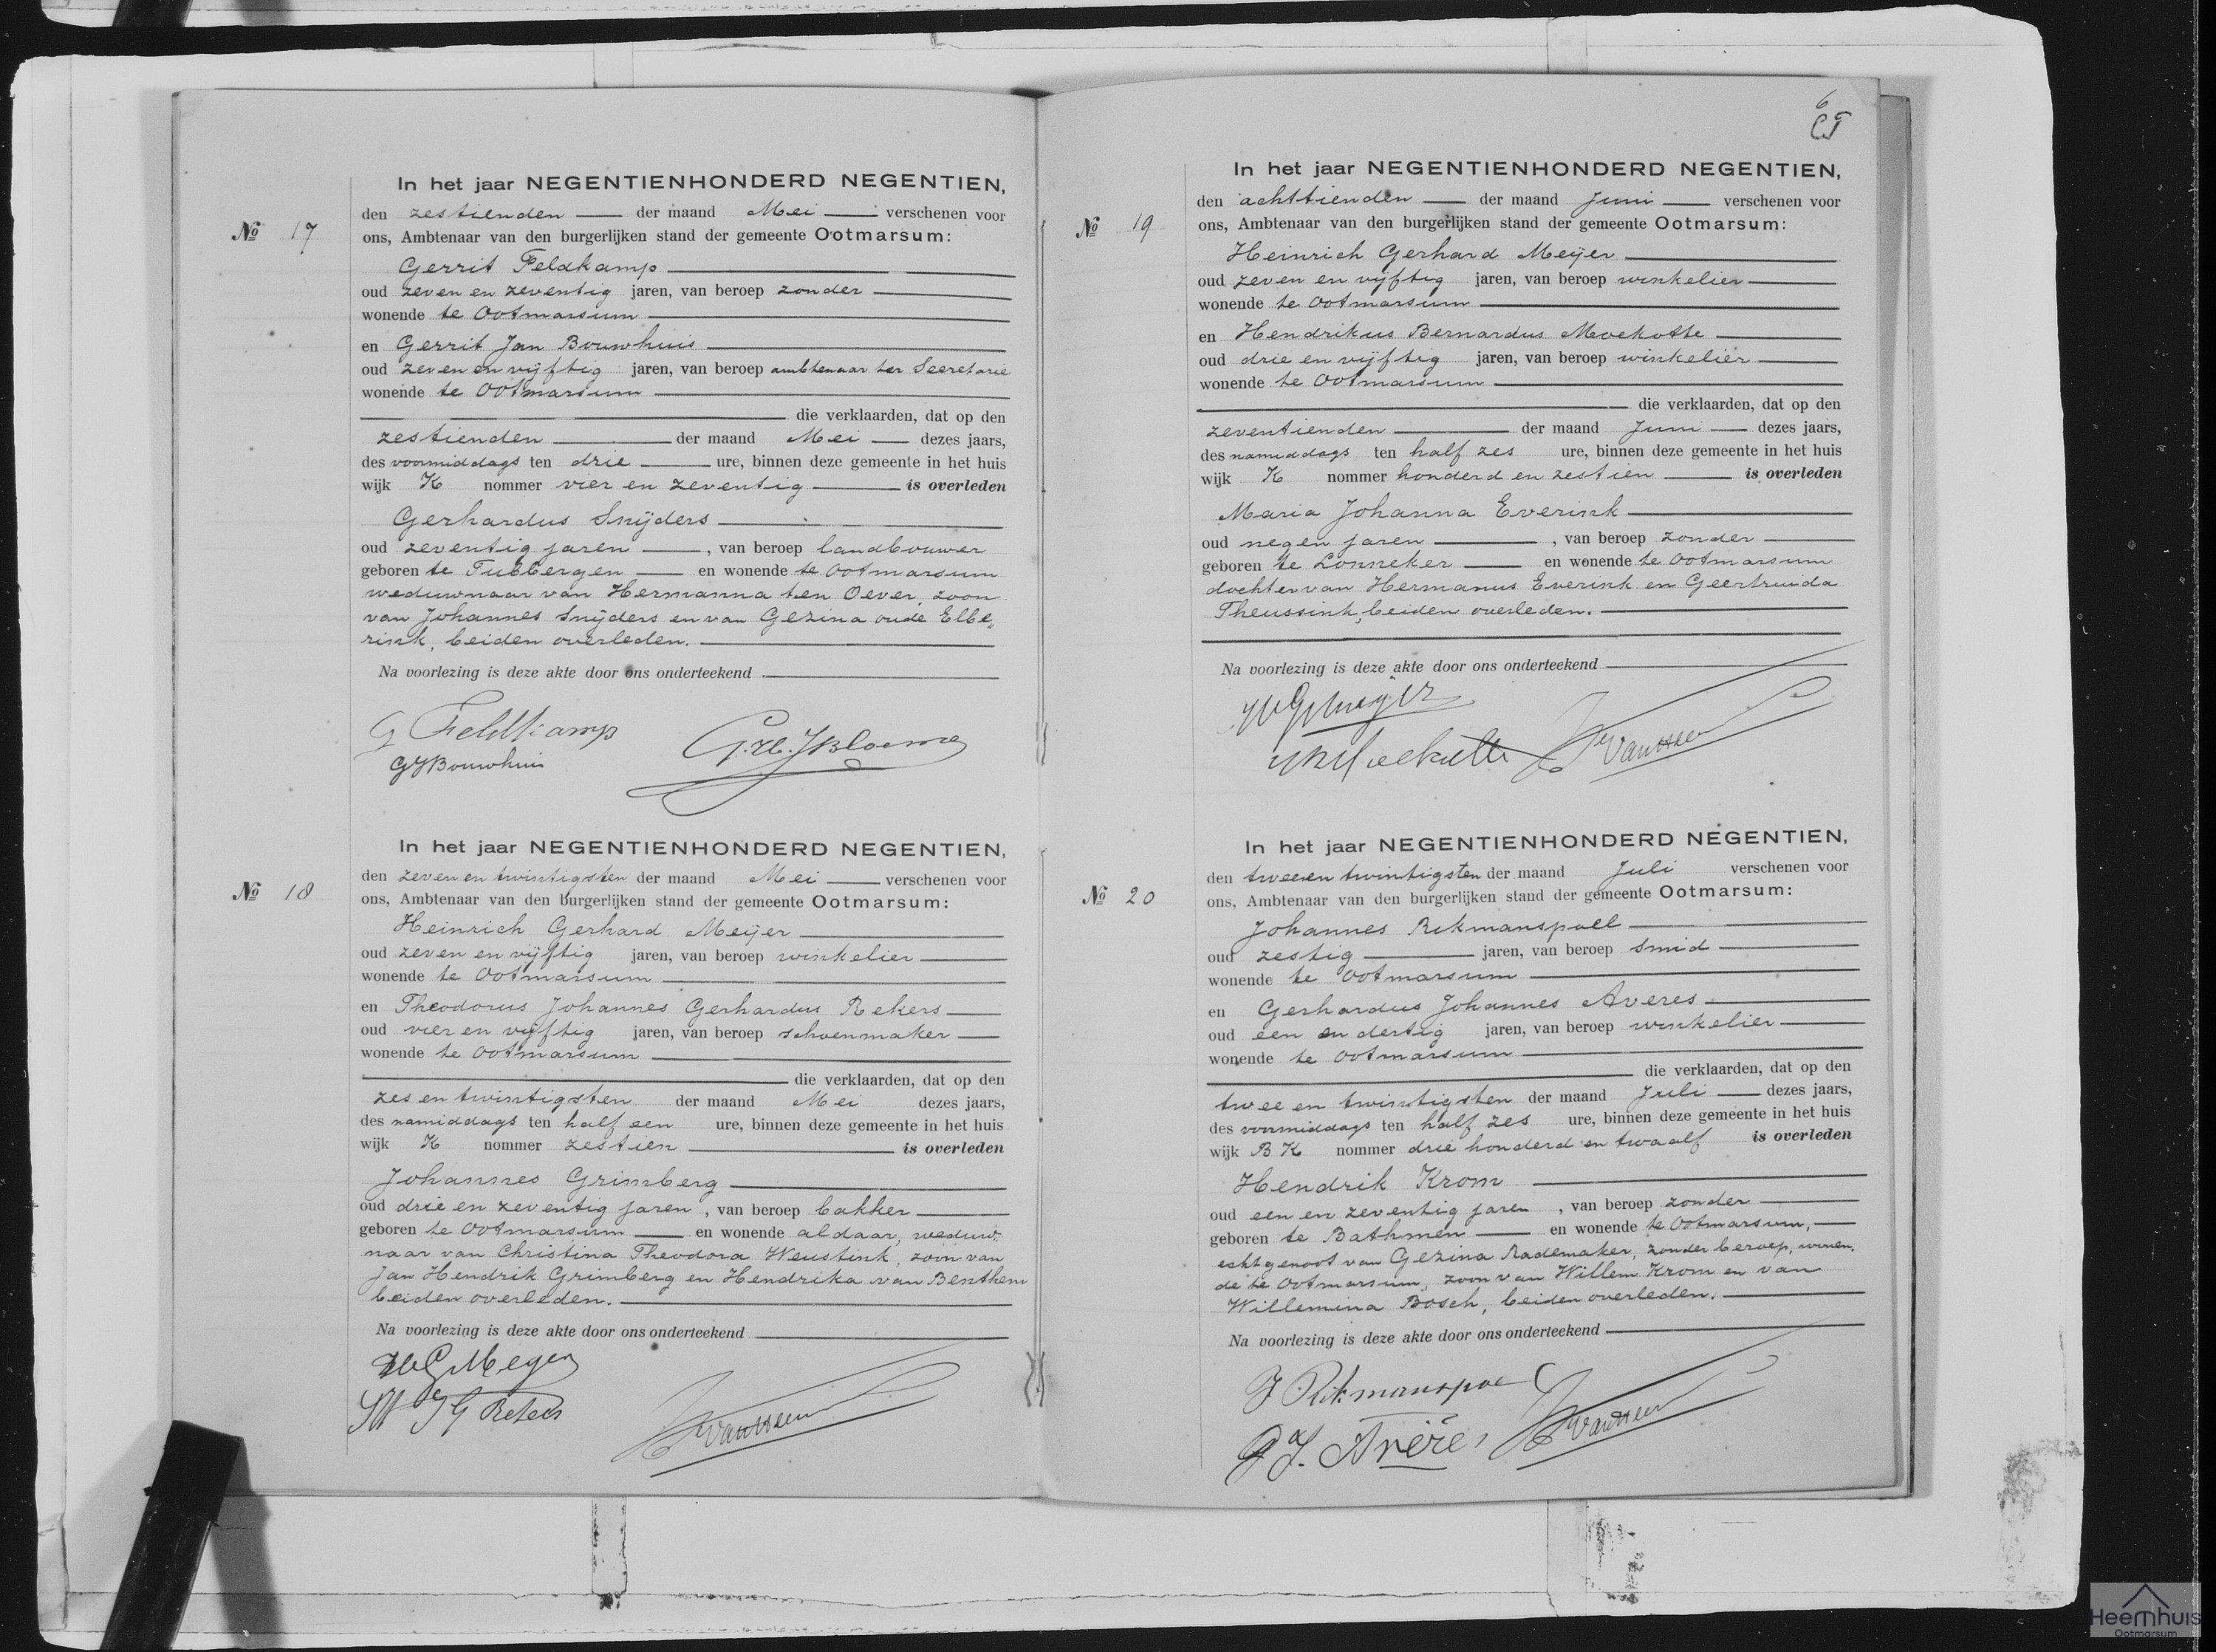 In het jaar NEGENTIENHONDERD NEGENTIEN,
den zestienden der maand Mei verschenen voor
No 17 ons, Ambtenaar van den burgerlijken stand der gemeente Ootmarsum:
Gerrit Feldkamp
oud zeven en zeventig jaren, van beroep zonder
wonende te Ootmarsum
en Gerrit Jan Bouwhuis
oud zeven en vijftig jaren, van beroep ambtenaar ter Secretarie
wonende te Ootmarsum
die verklaarden, dat op den
zestienden der maand Mei dezes jaars,
des voormiddags ten drie ure, binnen deze gemeente in het huis
wijk K nommer vier en zeventig is overleden
Gerhardus Snijders
oud zeventig jaren, van beroep landbouwer
geboren te Tubbergen en wonende te Ootmarsum
weduwnaar van Hermanna ten Oever, zoon
van Johannes Snijders en van Gezina oude Elbe„
rink, beiden overleden.
Na voorlezing is deze akte door ons onderteekend
G Feldkamp
GJBouwhuis
In het jaar NEGENTIENHONDERD NEGENTIEN,
den zeven en twintigsten der maand Mei verschenen voor
No 18 ons, Ambtenaar van den burgerlijken stand der gemeente Ootmarsum:
Heinrich Gerhard Meijer
oud zeven en vijftig jaren, van beroep winkelier
wonende te Ootmarsum
en Theodorus Johannes Gerhardus Rekers
oud vier en vijftig jaren, van beroep schoenmaker
wonende te Ootmarsum
die verklaarden, dat op den
zes en twintigsten der maand Mei dezes jaars,
des namiddags ten half een ure, binnen deze gemeente in het huis
wijk K nommer zestien is overleden
Johannes Grimberg
oud drie en zeventig jaren, van beroep bakker
geboren te Ootmarsum en wonende aldaar, weduw-
naar van Christina Theodora Weustink, zoon van
Jan Hendrik Grimberg en Hendrika van Benthem
beiden overleden.
Na voorlezing is deze akte door ons onderteekend
HG Meyer
6
In het jaar NEGENTIENHONDERD NEGENTIEN,
den achttienden der maand Juni verschenen voor
No 19 ons, Ambtenaar van den burgerlijken stand der gemeente Ootmarsum:
Heinrich Gerhard Meijer
oud zeven en vijftig jaren, van beroep winkelier
wonende te Ootmarsum
en Hendrikus Bernardus Moekotte
oud drie en vijftig jaren, van beroep winkelier
wonende te Ootmarsum
die verklaarden, dat op den
zeventienden der maand Juni dezes jaars,
des namiddags ten half zes ure, binnen deze gemeente in het huis
wijk K nommer honderd en zestien is overleden
Maria Johanna Everink
oud negen jaren, van beroep zonder
geboren te Lonneker en wonende te Ootmarsum
dochter van Hermanus Everink en Geertruida
Theussink, beiden overleden.
Na voorlezing is deze akte door ons onderteekend
In het jaar NEGENTIENHONDERD NEGENTIEN,
den twee en twintigsten der maand Juli verschenen voor
No 20 ons, Ambtenaar van den burgerlijken stand der gemeente Ootmarsum:
Johannes Rikmanspoel
oud zestig jaren, van beroep smid
wonende te Ootmarsum
en Gerhardus Johannes Averes
oud een en dertig jaren, van beroep winkelier
wonende te Ootmarsum
die verklaarden, dat op den
twee en twintigsten der maand Juli dezes jaars,
des voormiddags ten half zes ure, binnen deze gemeente in het huis
wijk B K nommer drie honderd en twaalf is overleden
Hendrik Krom
oud een en zeventig jaren, van beroep zonder
geboren te Bathmen en wonende te Ootmarsum,
echtgenoot van Gezina Rademaker, zonder beroep, wonen,
de te Ootmarsum, zoon van Willem Krom en van
Willemina Bosch, beiden overleden.
Na voorlezing is deze akte door ons onderteekend
J Rikmanspoel
Heemhuis
Ootmarsum